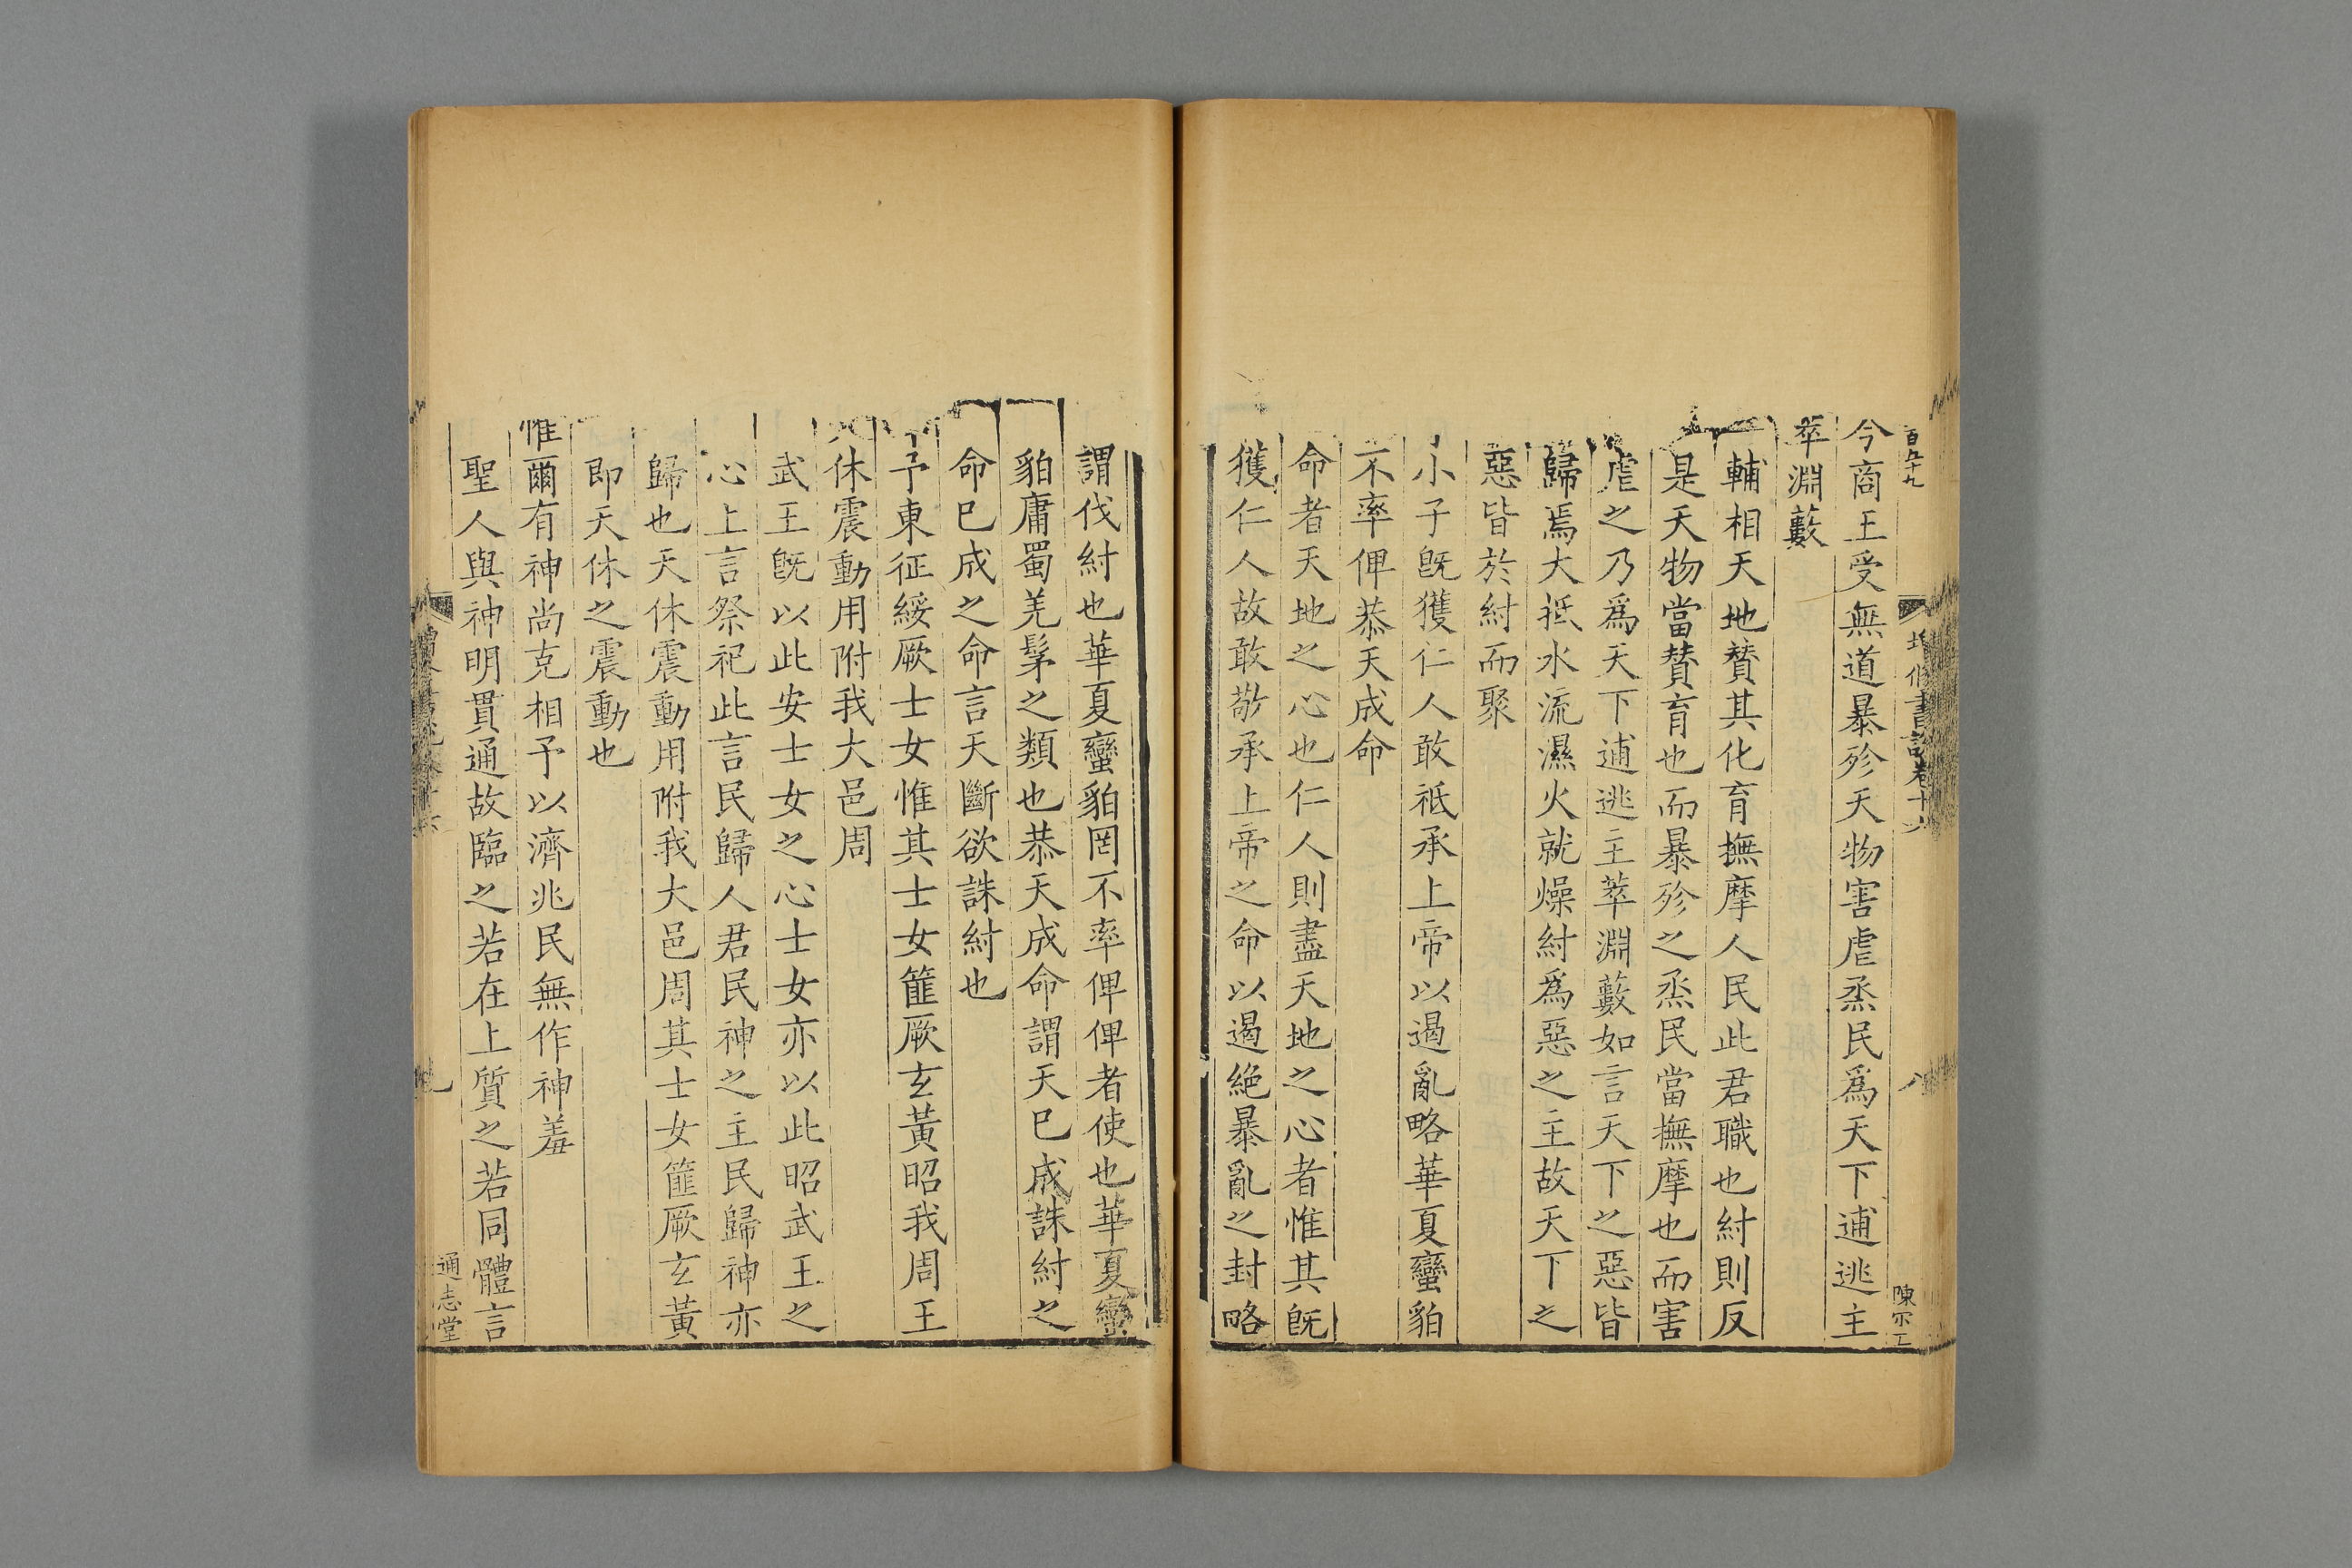 百九十九
書說卷十六
八
陳
今商王受無道暴殄天物害虐烝民爲天下逋逃主
萃淵藪
輔相天地賛其化育撫摩人民此君職也紂則反
是天物當賛育也而暴殄之烝民當撫摩也而害
虐之乃爲天下逋逃主萃淵藪如言天下之惡皆
歸焉大抵水流濕火就燥紂爲惡之主故天下之
惡皆於紂而聚
小子旣獲仁人敢祗承上帝以遏亂略華夏蠻貊
不率俾恭天成命
命者天地之心也仁人則盡天地之心者惟其旣
獲仁人故敢敬承上帝之命以遏絕暴亂之封略
謂伐紂也華夏蠻貊罔不率俾俾者使也華夏蠻
貊庸蜀羌髳之類也恭天成命謂天已成誅紂之
命已成之命言天斷欲誅紂也
予東征綏厥士女惟其士女篚厥玄黃昭我周王
休震動用附我大邑周
武王旣以此安士女之心士女亦以此昭武王之
心上言祭祀此言民歸人君民神之主民歸神亦
歸也天休震動用附我大邑周其士女篚厥玄黃
即天休之震動也
惟爾有神尚克相予以濟兆民無作神羞
聖人與神明貫通故臨之若在上質之若同體言
通志堂